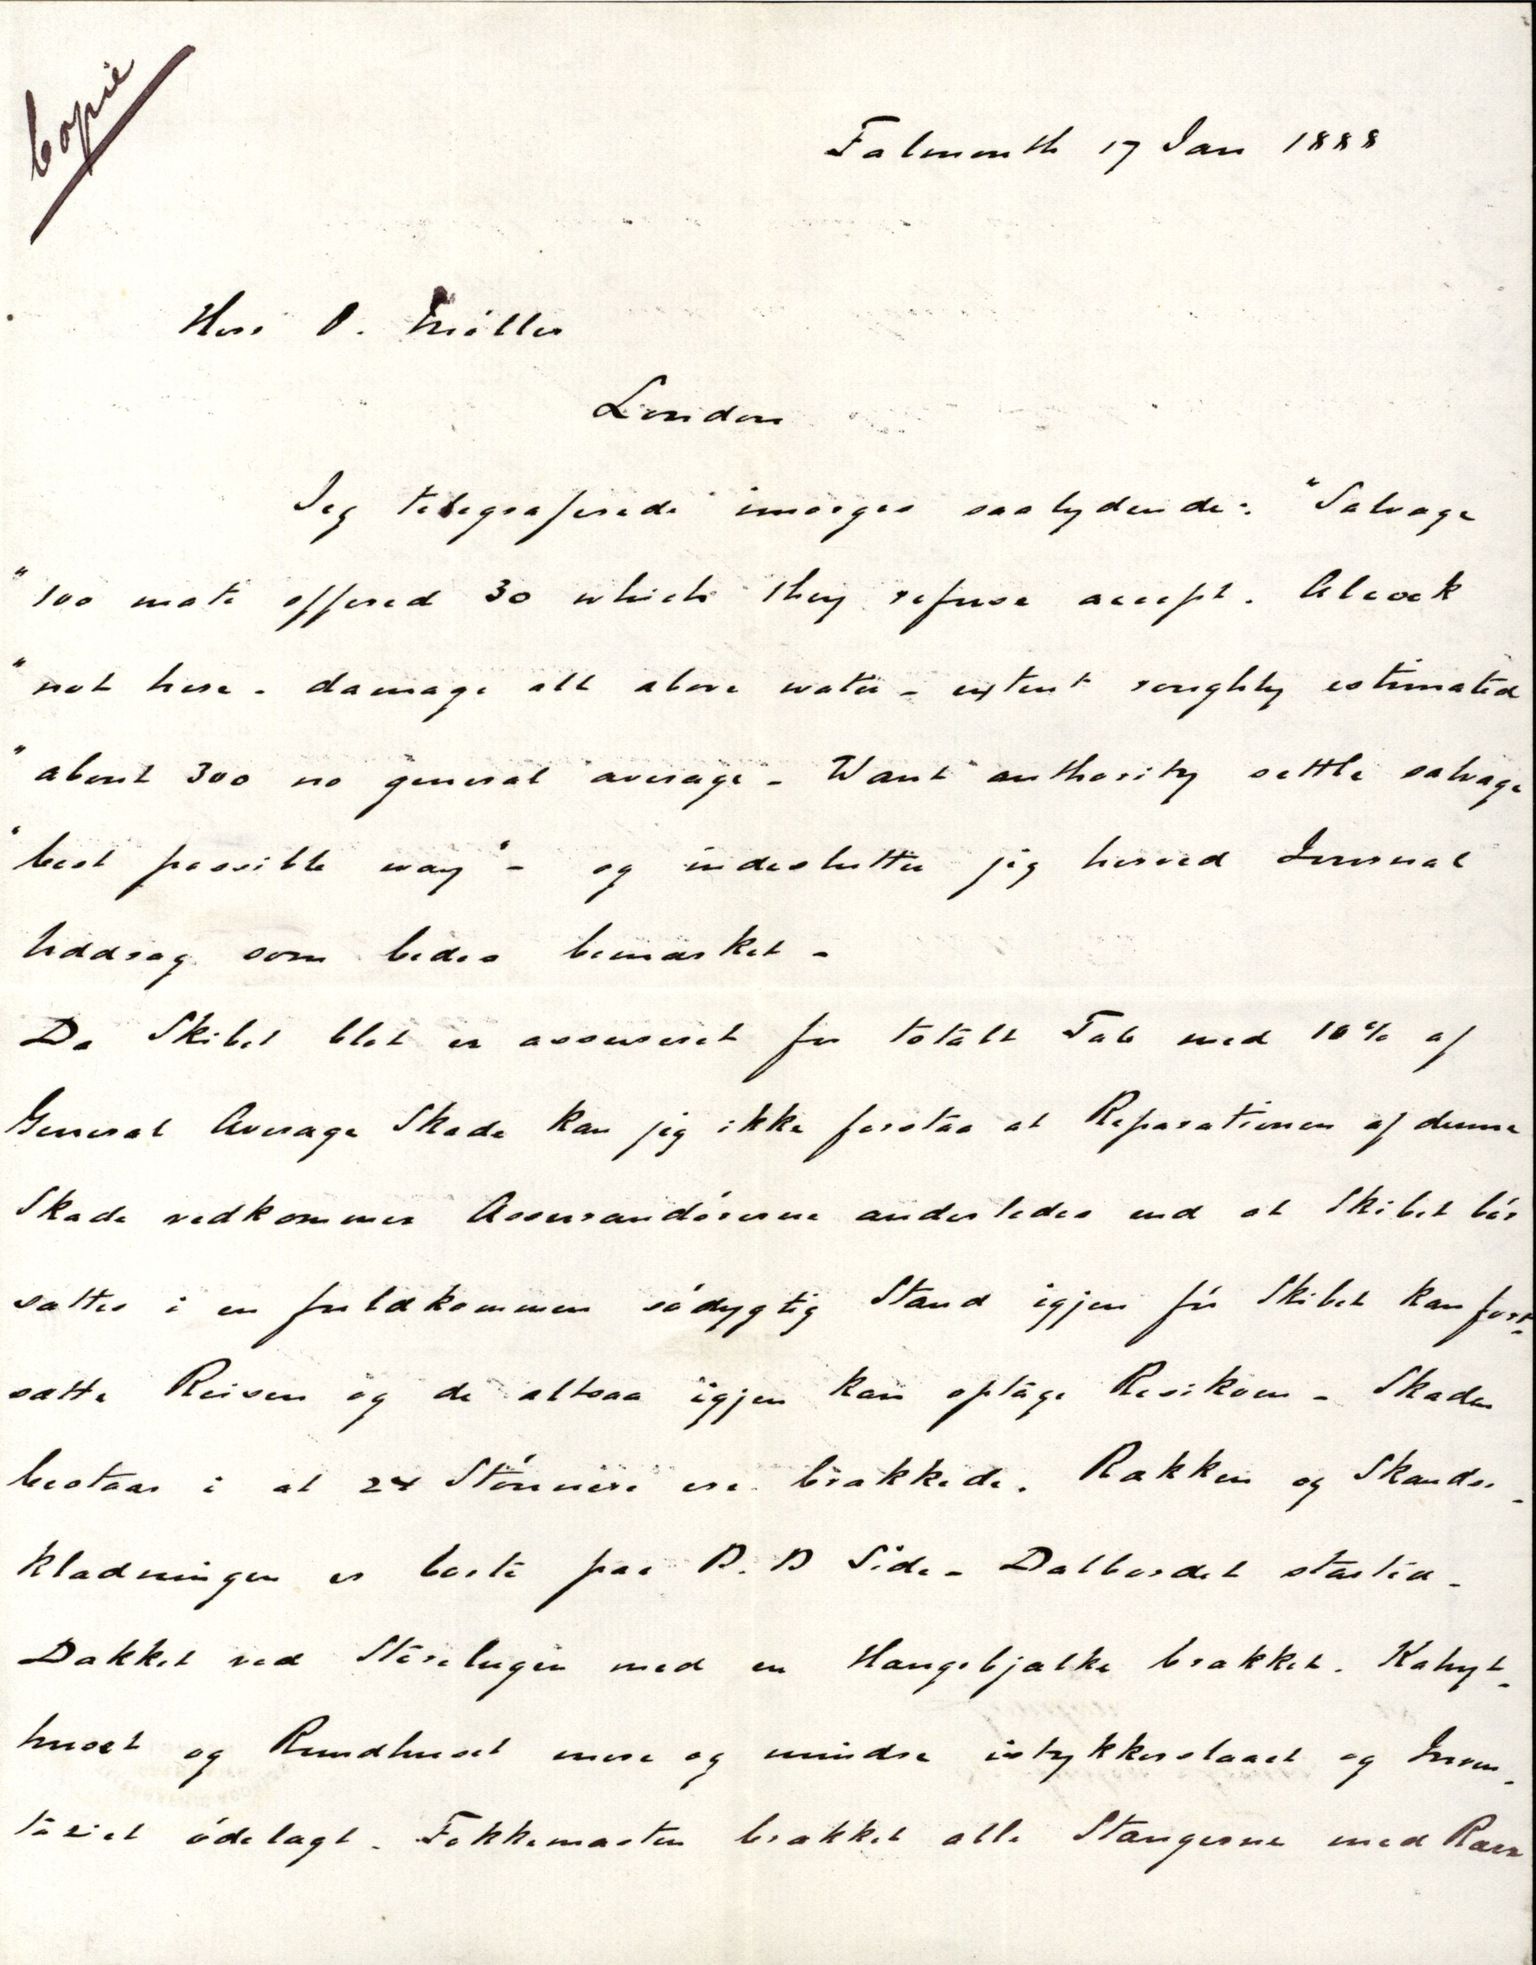 Copie
Falmouth 17 Jan 1888
Herr P. Möller
London
Jeg telegraferede imorges saalydende: "Salvage
"100 mate offered 30 which they refuse accept. Alcock
"not here - damage all above water - extent roughly estimated
"about 300 no general average - Want authority settle salvage
"best possible way" - og indeslutter jeg herved Journal
Uddrag som bedes bemærket -
Da Skibet blot er assureret for totalt Tab med 10% af
General Average Skade kan jeg ikke forstaa at Reparationen af denne
Skade vedkommer Assurandörerne anderledes end at Skibet bör
sættes i en fuldkommen södygtig Stand igjen för Skibet kan fort-
sætte Reisen og de altsaa igjen kan optage Resikoen - Skaden
bestaar i at 24 Stönnere ere brækkede. Rækken og Skandse-
klædningen er borte paa B.B Side - Dalbordet started -
Dækket ved Storelugen med en Hængebjælke brækket. Kahyt-
huset og Rundhuset mere og mindre istykkerslaaet og Inven-
tariet ödelagt. Fokkemasten brækket alle Stængerne med Raaer